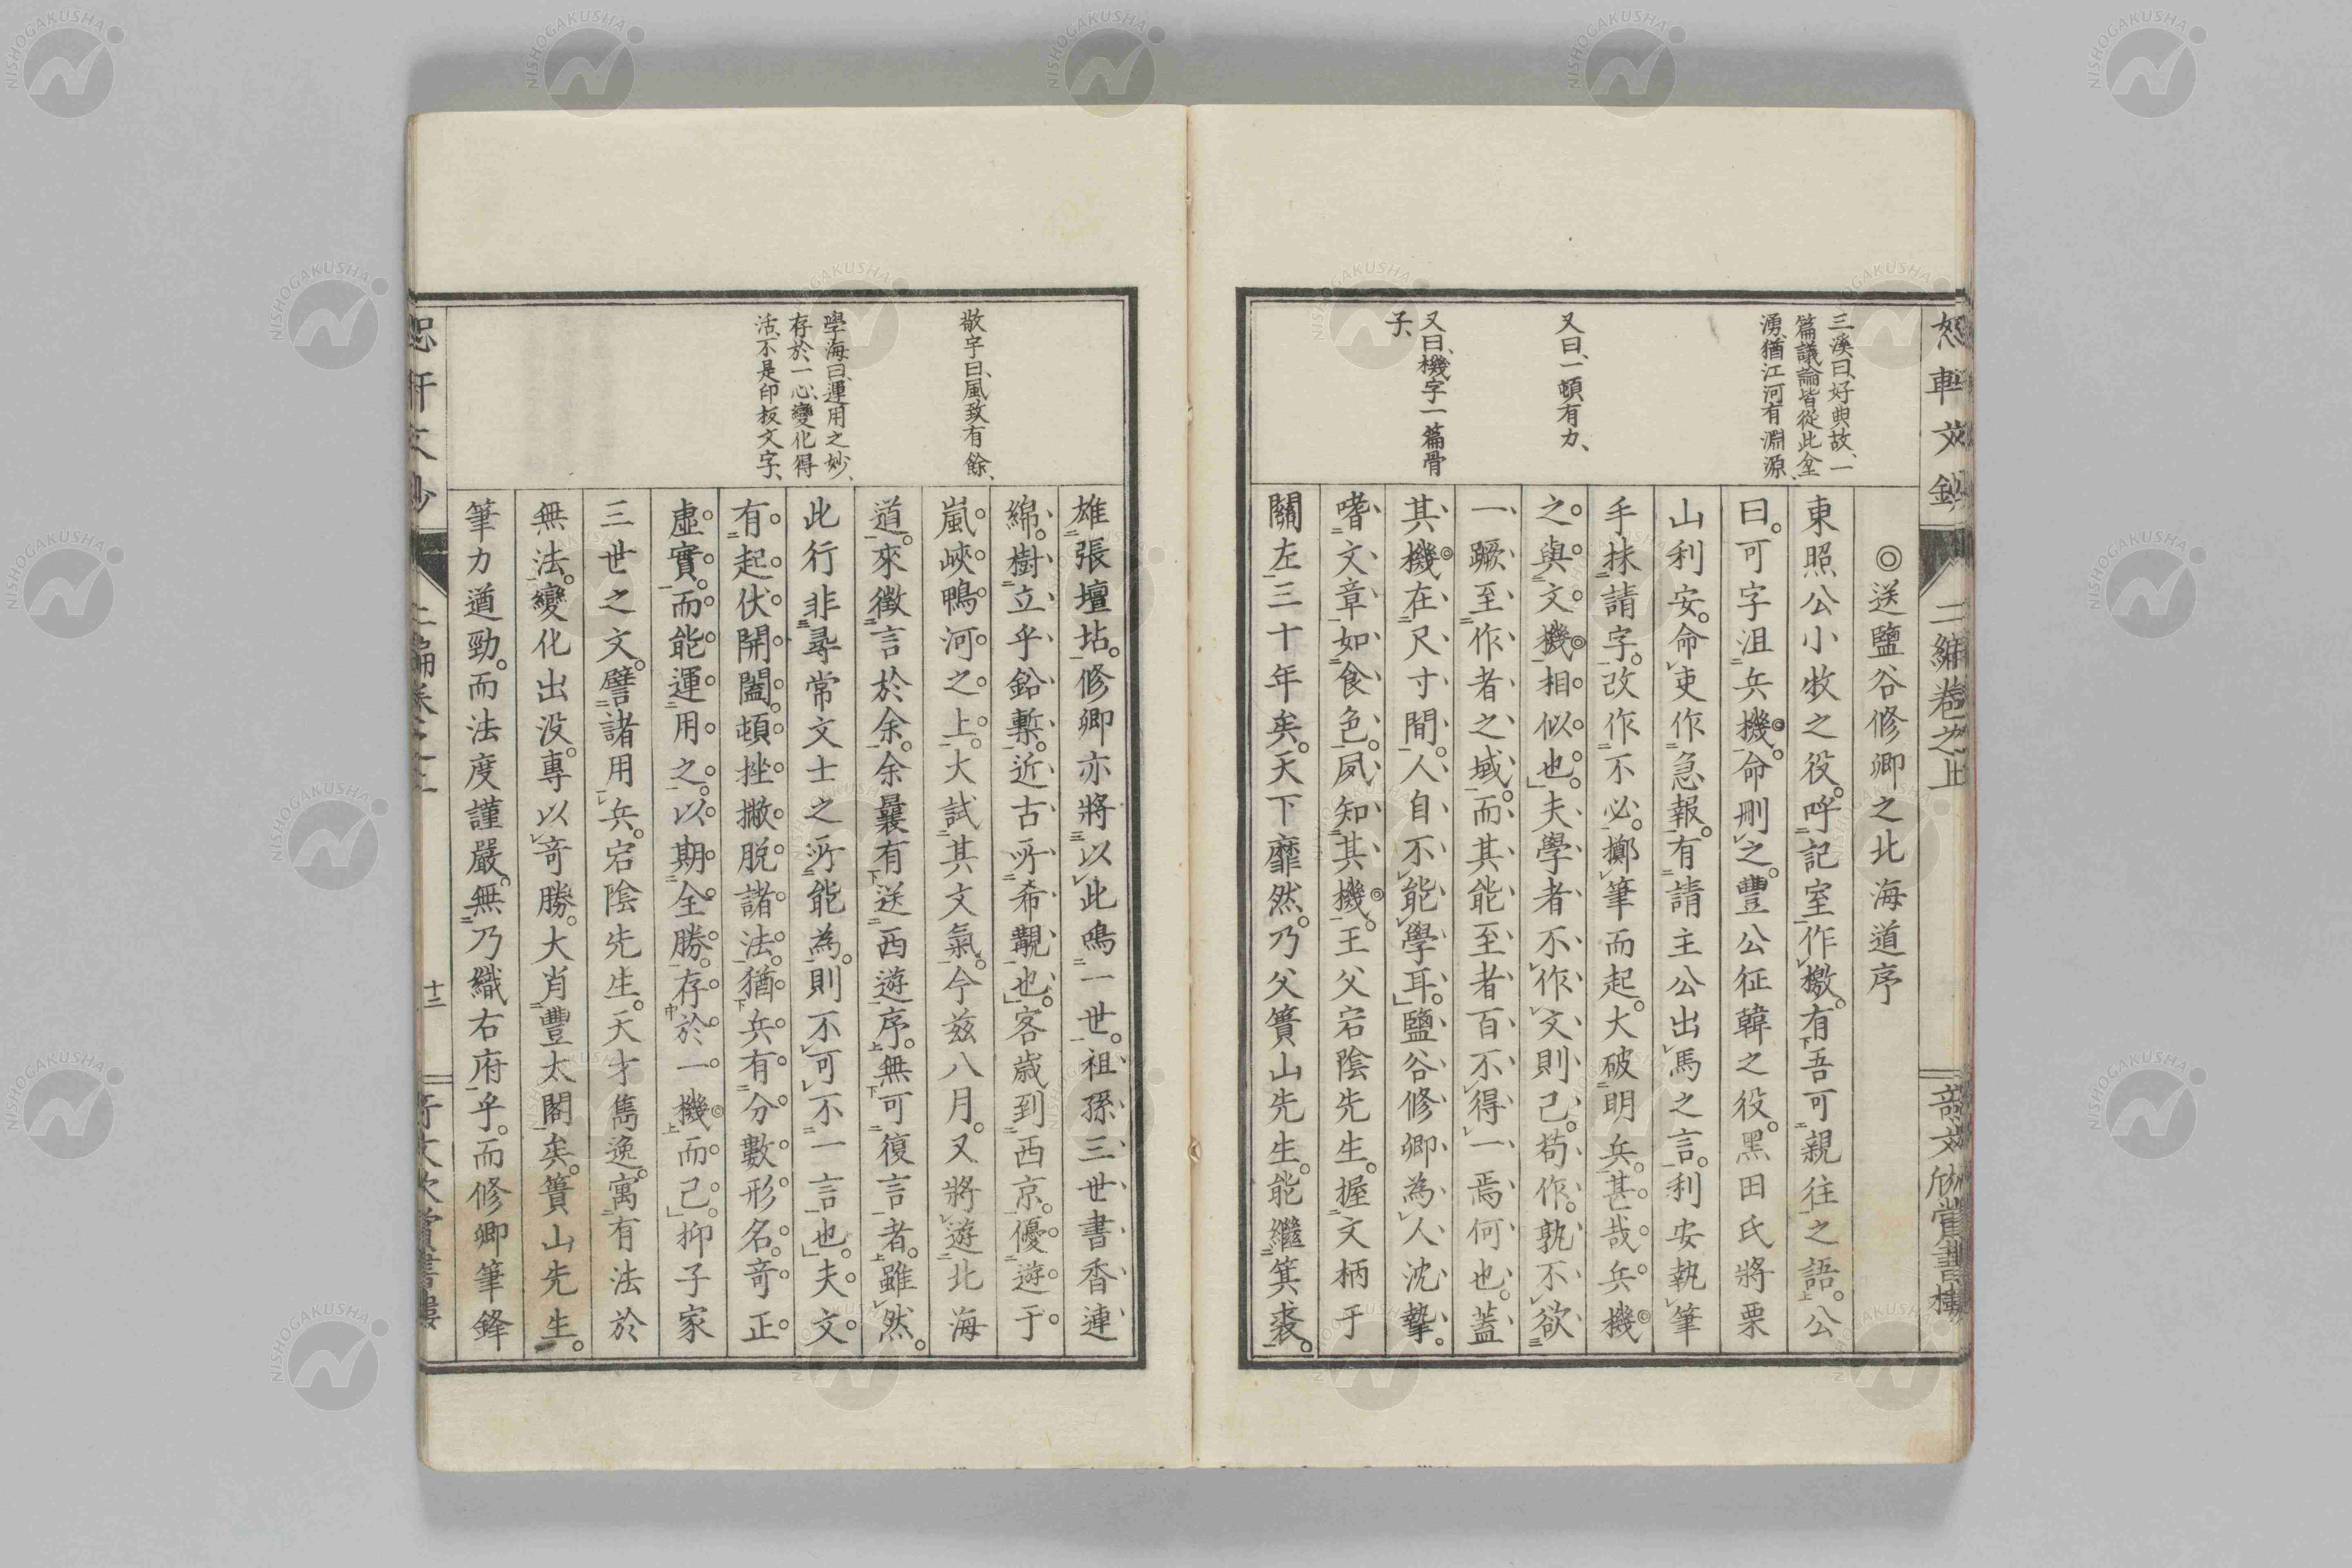 恕軒文鈔 二編卷之上 奇文欣賞書樓
三溪曰、好典故、一
篇議論皆從此坌
湧、猶江河有淵源、
又曰、一頓有力、
又曰、機字一篇骨
子、
◎送鹽谷修卿之北海道序
東照公小牧之役。呼記室作檄。有吾可親往之語。公
曰。可字沮兵機。命刪之。豐公征韓之役。黑田氏將栗
山利安。命吏作急報。有請主公出馬之言。利安執筆
手抹請字。改作不必。擲筆而起。大破明兵。甚哉。兵機
之與文機相似也。夫學者不作文則已。苟作。孰不欲
一蹶至作者之域。而其能至者百不得一焉何也。蓋
其機在尺寸間。人自不能學耳。鹽谷修卿為人沈摯。
嗜文章如食色。夙知其機。王父宕陰先生。握文柄于
關左三十年矣。天下靡然。乃父簣山先生。能繼箕裘。
敬宇曰、風致有餘、
學海曰、運用之妙、
存於一心、變化得
活、不是印板文字、
雄張壇坫。修卿亦將以此鳴一世。祖孫三世書香連
綿。樹立乎鉛槧。近古所希覯也。客歲到西京。優遊于
嵐峽鴨河之上。大試其文氣。今茲八月。又將遊北海
道。來徵言於余。余曩有送西遊序。無可復言者。雖然。
此行非尋常文士之所能為。則不可不一言也。夫文
有起伏開闔頓挫撇脫諸法。猶兵有分數形名。奇正
虛實。而能運用之。以期全勝。存於一機而已。抑子家
三世之文。譬諸用兵。宕陰先生。天才雋逸。寓有法於
無法。變化出沒。專以奇勝。大肖豐太閤矣。簣山先生。
筆力遒勁。而法度謹嚴。無乃織右府乎。而修卿筆鋒
恕軒文鈔 二編卷之上 十二 奇文欣賞書樓
NISHOGAKUSHA